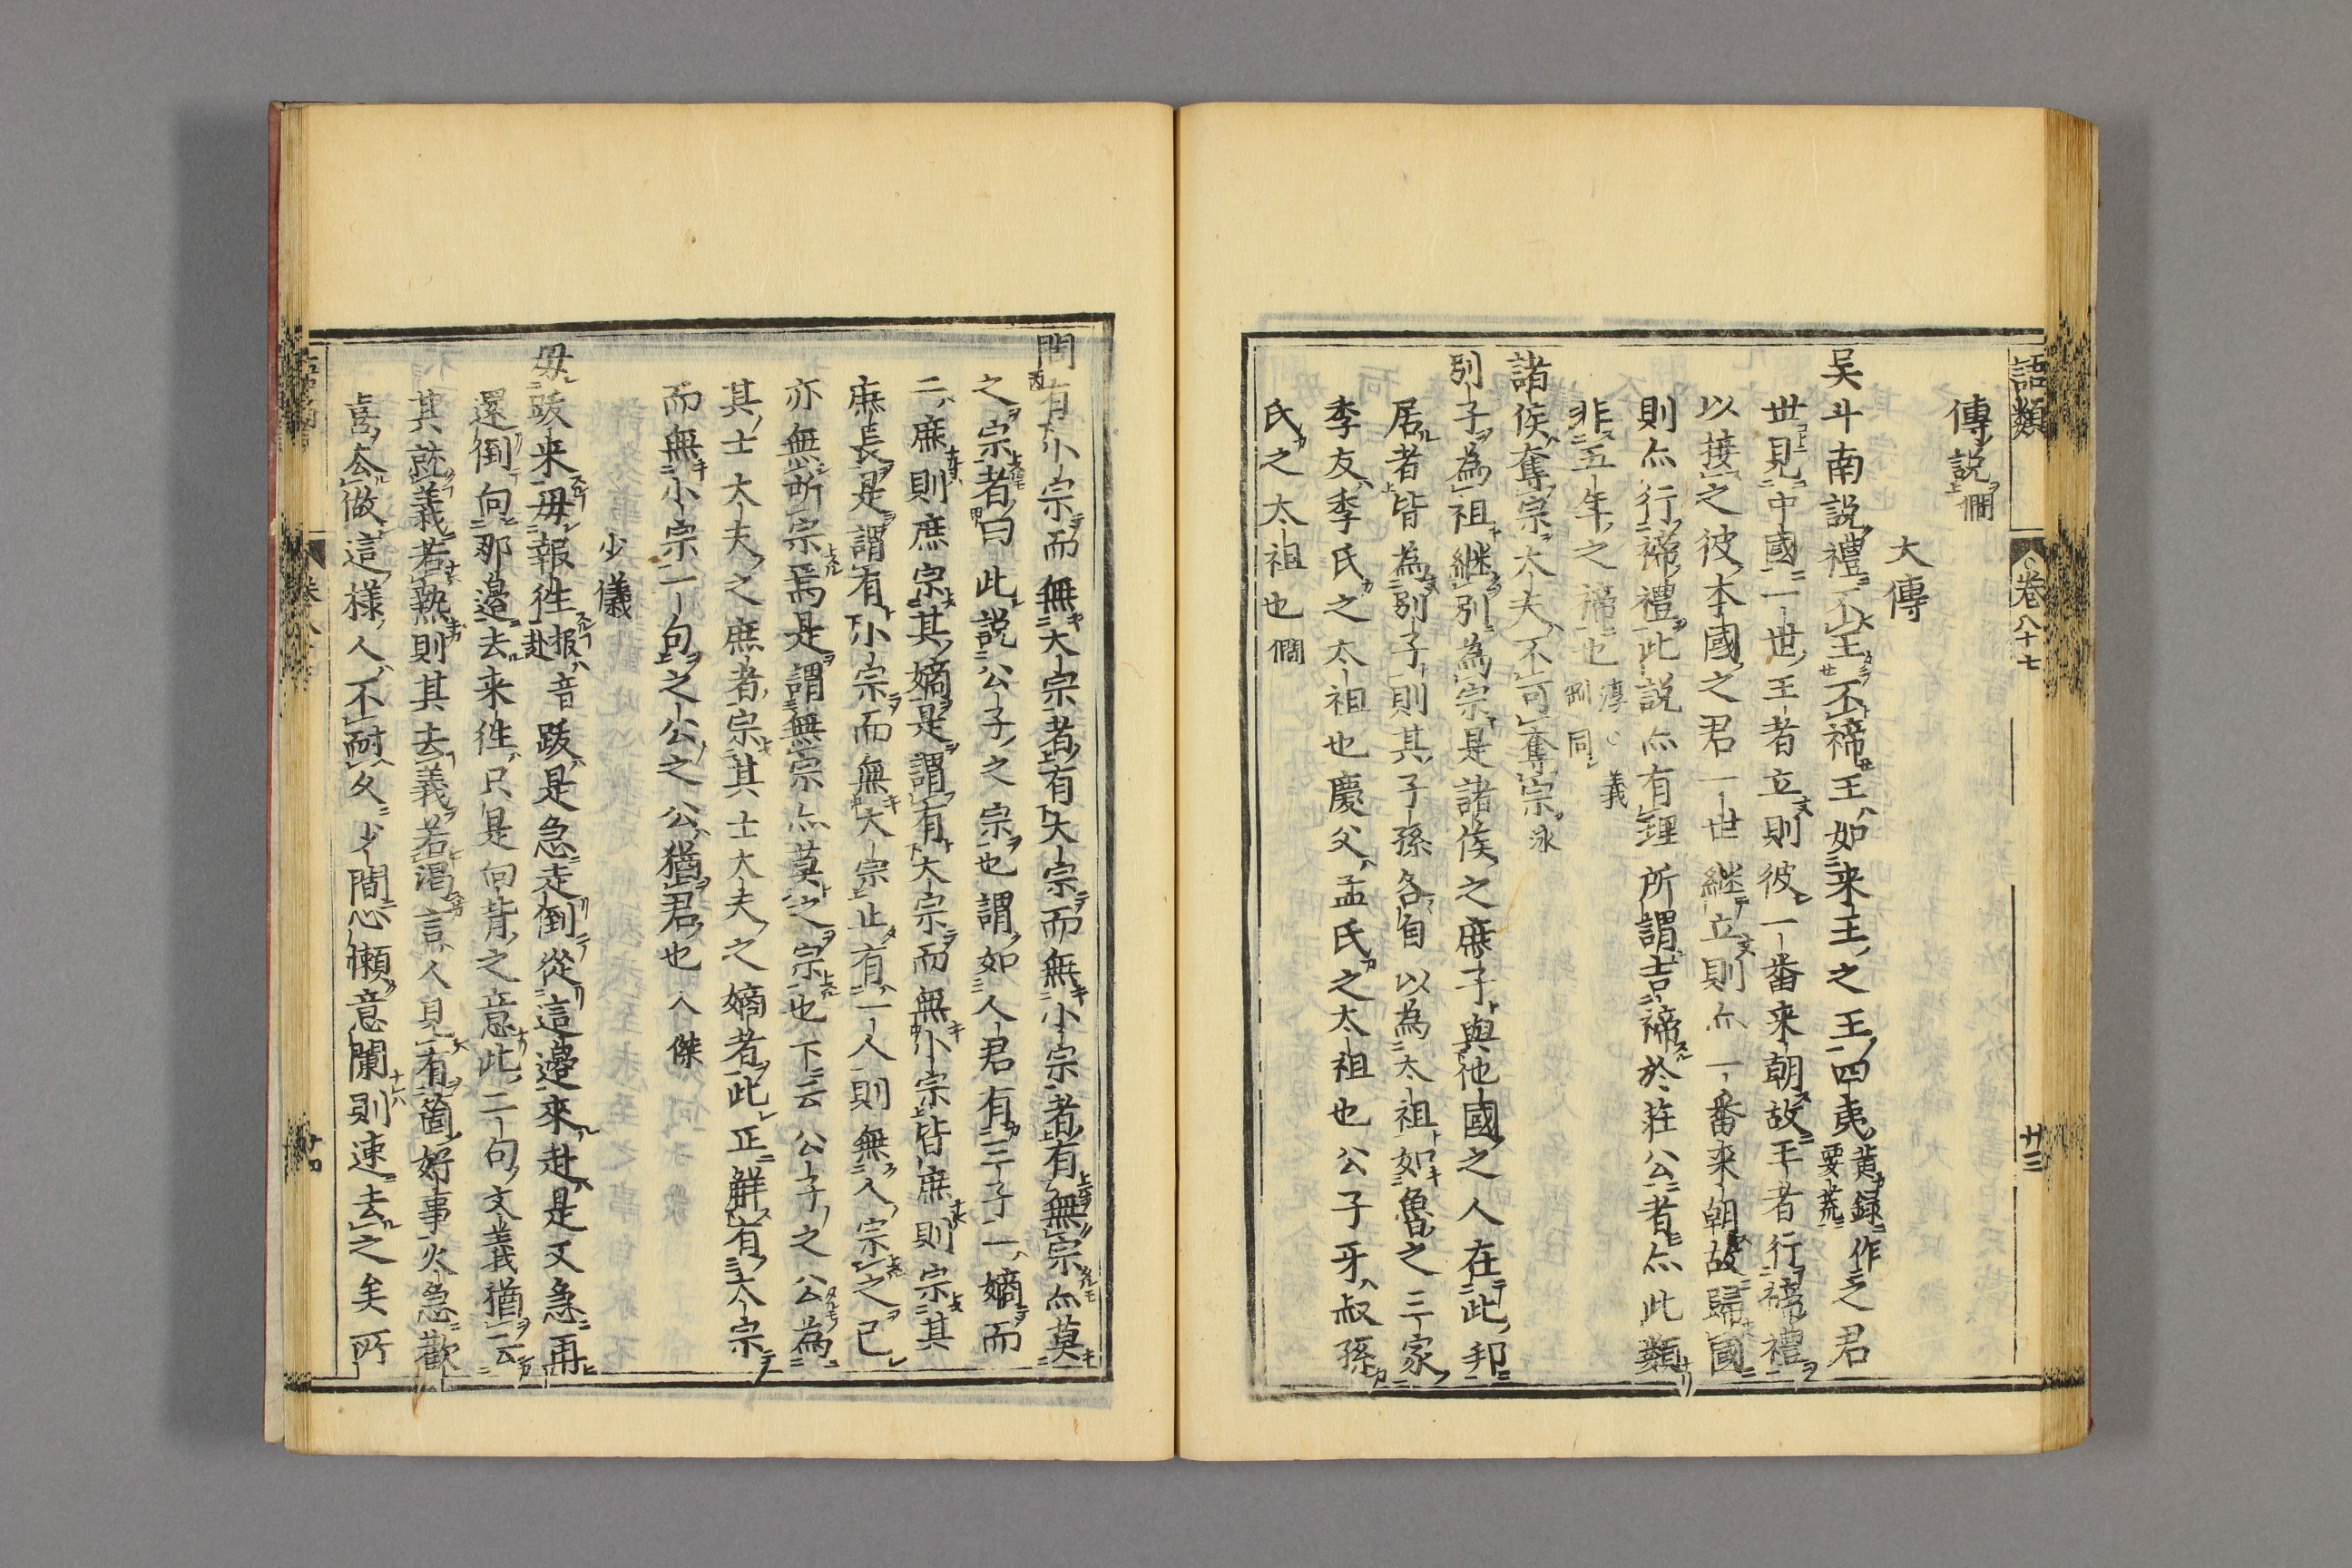 語類 卷八十七 廿三
傳説僩
大傳
吴斗南説禮不王不禘王如来王之王四夷黄録作之君
要荒
世見中國一世王者立則彼一番来朝故王者行禘禮
以接之彼本國之君一世継立則亦一番来朝故歸國
則亦行禘禮此説亦有理所謂吉禘於莊公者亦此類
非五年之禘也淳○義
剛同
諸侯奪宗大夫不可奪宗泳
別子為祖継別為宗是諸侯之庶子與他國之人在此邦
居者皆為別子則其子孫各自以為太祖如魯之三家
季友季氏之太祖也慶父孟氏之太祖也公子牙叔孫
氏之太祖也僩
問有小宗而無大宗者有大宗而無小宗者有無宗亦莫
之宗者曰此説公子之宗也謂如人君有三子一嫡而
二庶則庶宗其嫡是謂有大宗而無小宗皆庶則宗其
庶長是謂有小宗而無大宗止有一人則無人宗之已
亦無所宗焉是謂無宗亦莫之宗也下云公子之公為
其士大夫之庶者宗其士大夫之嫡者此正觧有大宗
而無小宗一句之公之公猶君也人傑
少儀
毋䟦来毋報往報音
赴䟦是急走倒從這邉來赴是又急再
還倒向那邉去来往只是向背之意此二句文義猶云
其就義若熱則其去義若渇言人見有箇好事火急歡
喜去做這様人不耐久少間心懶意闌則速去之矣所